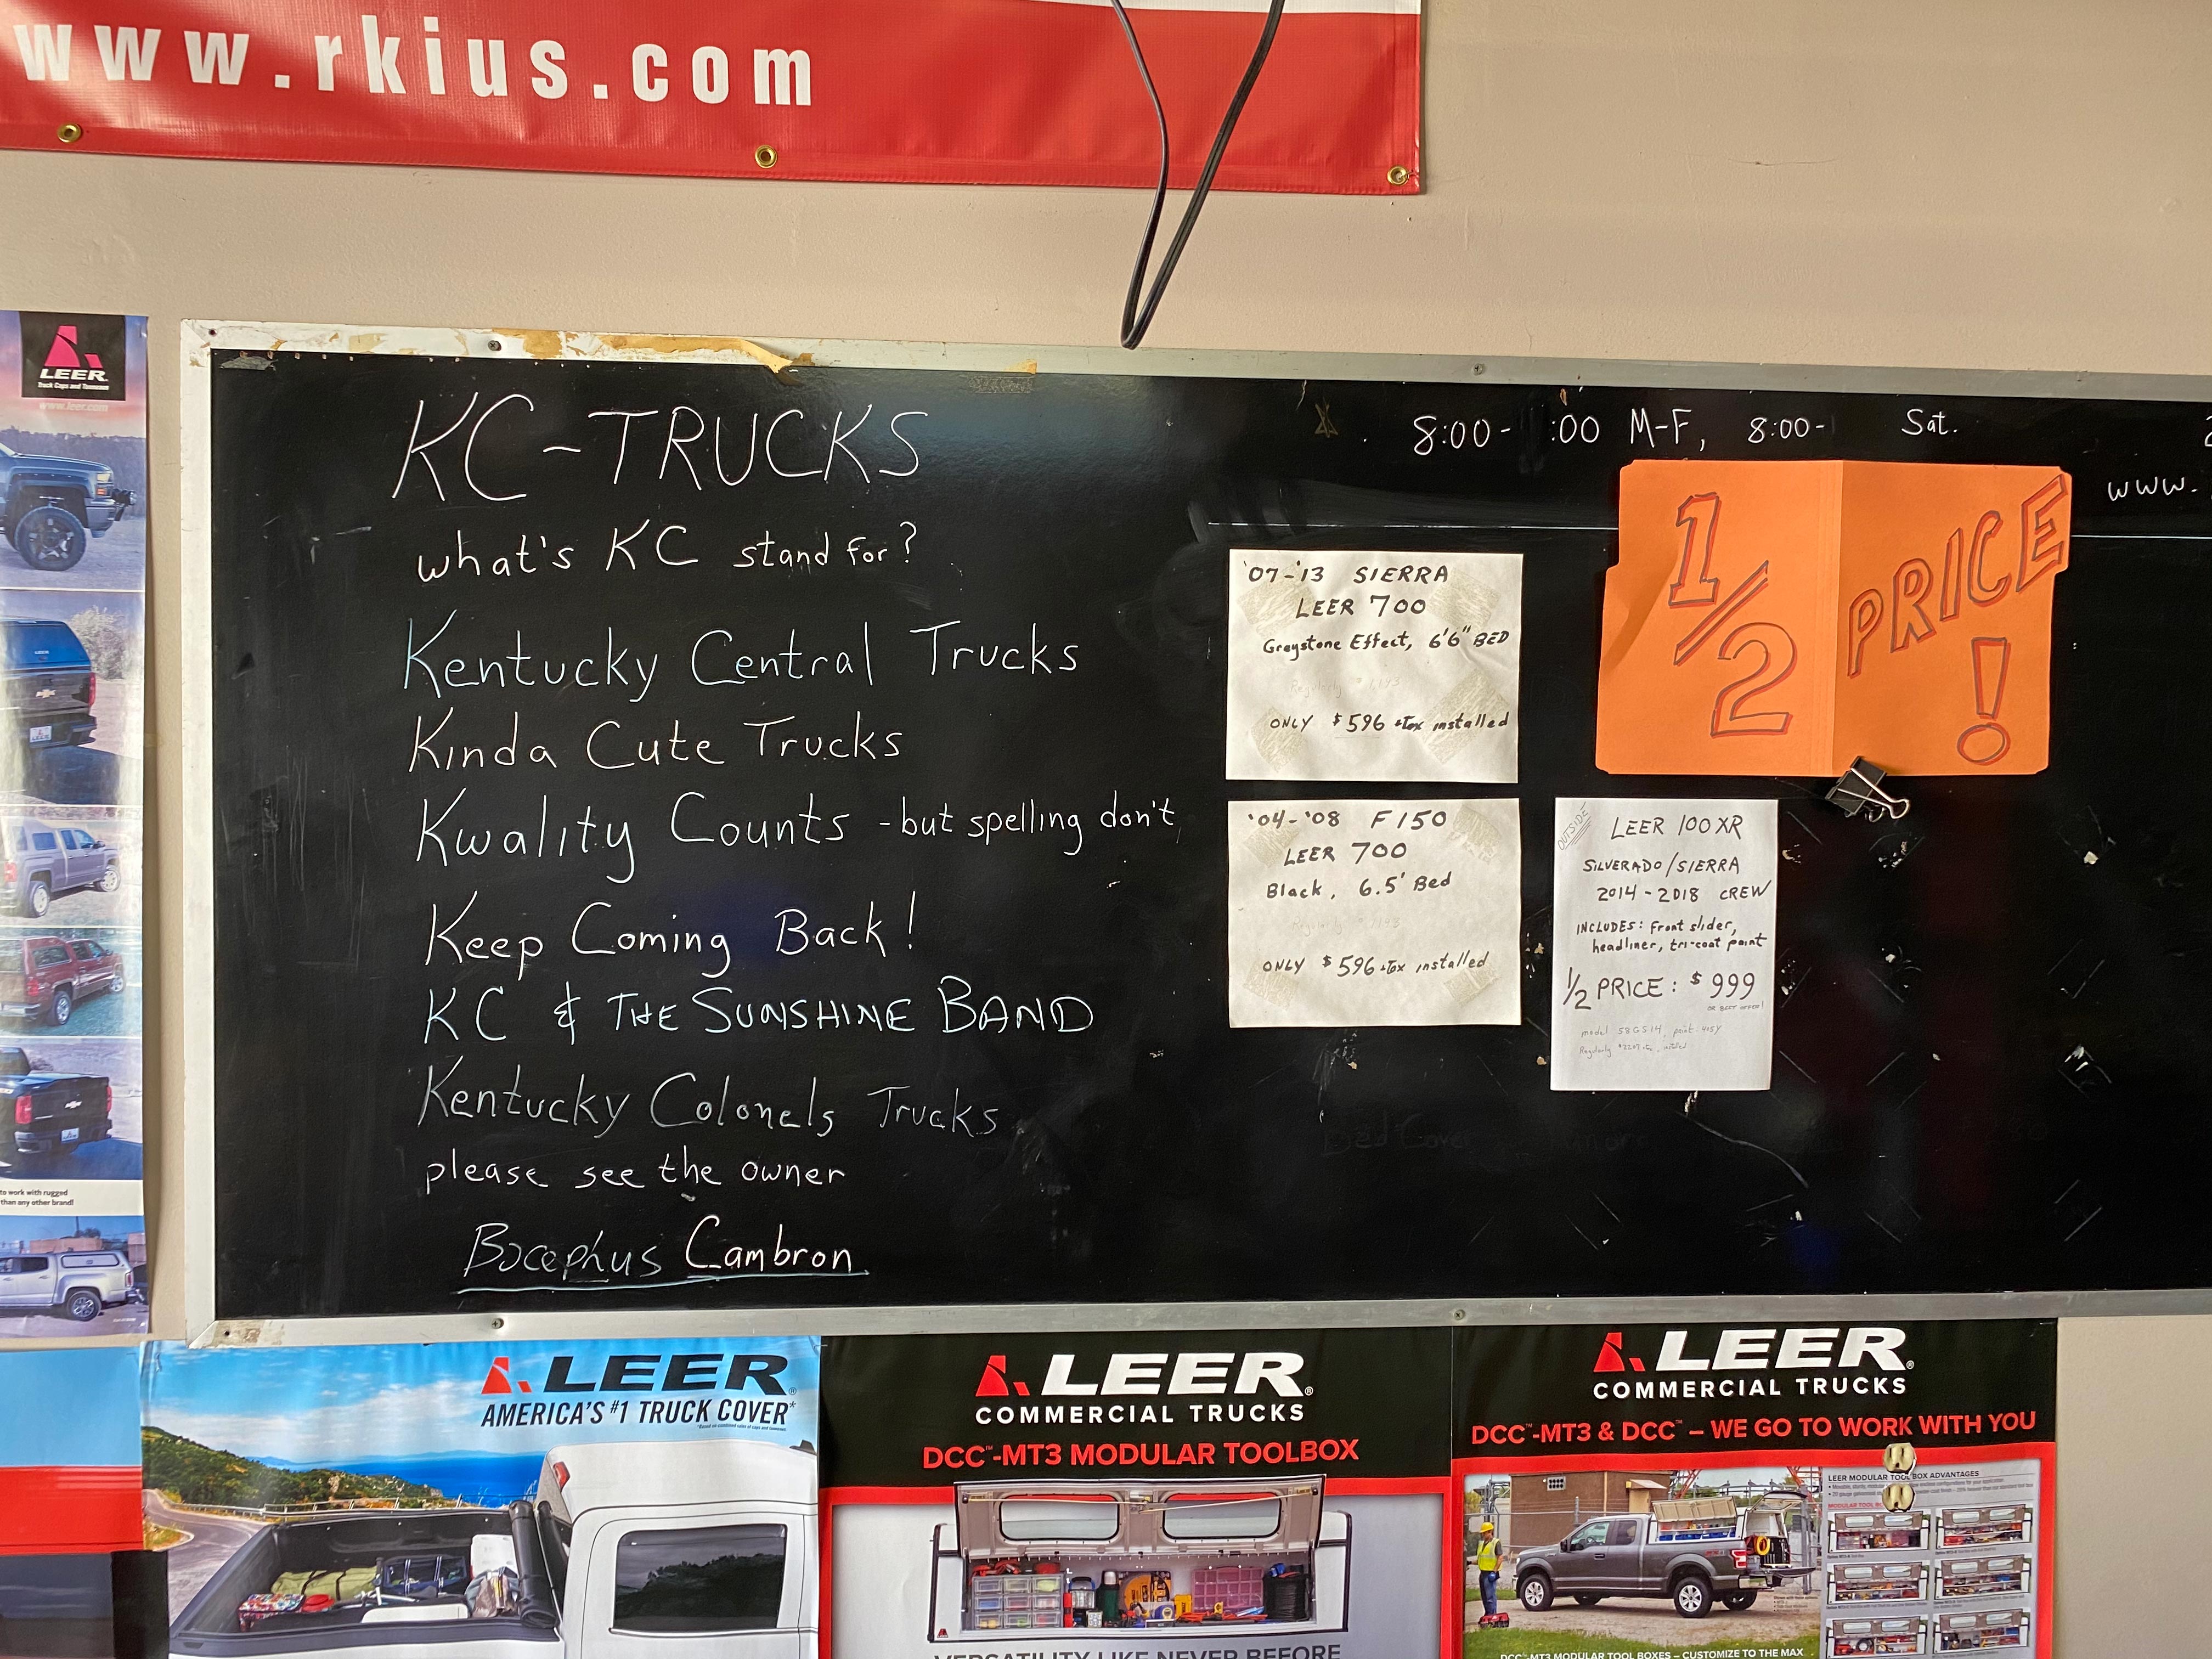 www.rkius.com
LEER
Truck Caps and Tonneaus
www.leer.com
to work with rugged
than any other brand!
KC-TRUCKS
what's KC stand for?
Kentucky Central Trucks
Kinda Cute Trucks
Kwality Counts - but spelling don't
Keep Coming Back!
KC & THE SUNSHINE BAND
Kentucky Colonels Trucks
please see the owner
Bocephus Cambron
8:00- :00 M-F, 8:00- Sat.
www.
1/2 PRICE!
'07-'13 SIERRA
LEER 700
Greystone Effect, 6'6" BED
Regularly
ONLY $596 +Tax installed
'04-'08 F150
LEER 700
Black, 6.5' Bed
Regularly
ONLY $596 +Tax installed
OUTSIDE
LEER 100XR
SILVERADO/SIERRA
2014-2018 CREW
INCLUDES: Front slider,
headliner, tri-coat paint
1/2 PRICE: $999
OR BEST OFFER!
model 58GS14, paint
Regularly
Bed Cove
LEER®
AMERICA'S #1 TRUCK COVER*
LEER®
COMMERCIAL TRUCKS
DCC™-MT3 MODULAR TOOLBOX
VERSATILITY LIKE NEVER BEFORE
LEER®
COMMERCIAL TRUCKS
DCC™-MT3 & DCC™ – WE GO TO WORK WITH YOU
LEER MODULAR TOOL BOX ADVANTAGES
DCC™-MT3 MODULAR TOOL BOXES – CUSTOMIZE TO THE MAX